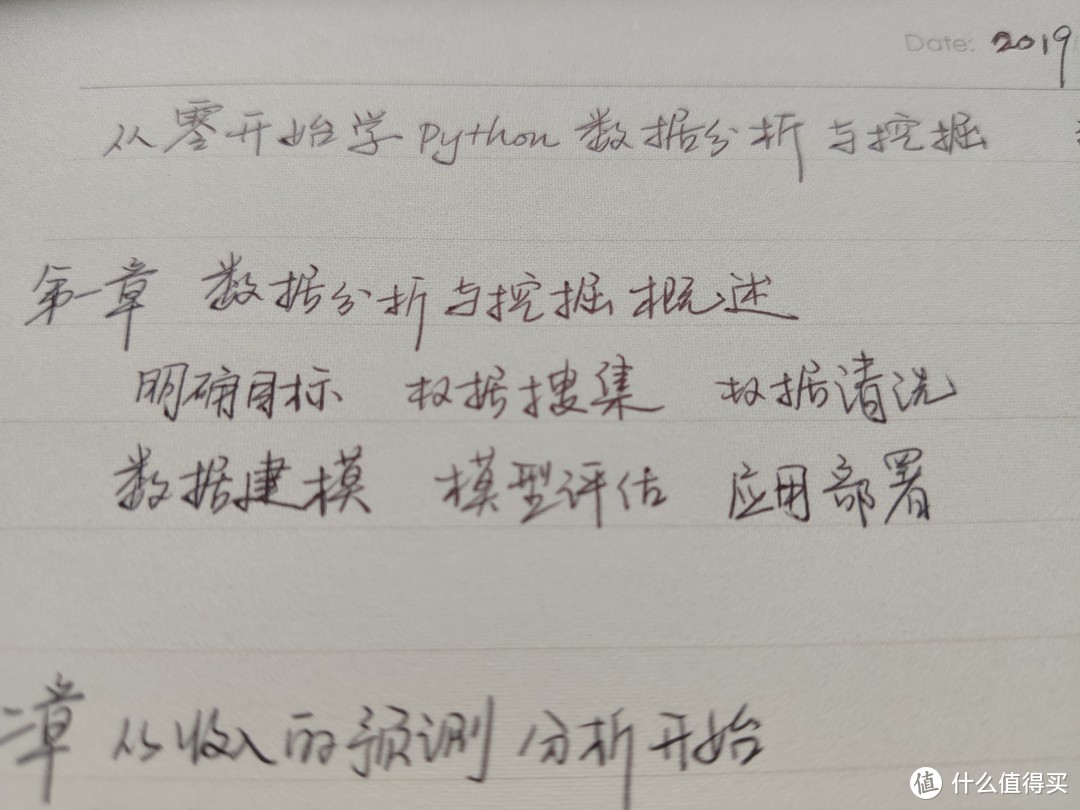 Date: 2019
从零开始学Python数据分析与挖掘
第一章 数据分析与挖掘概述
明确目标 数据搜集 数据清洗
数据建模 模型评估 应用部署
二章 从收入的预测分析开始
值 什么值得买